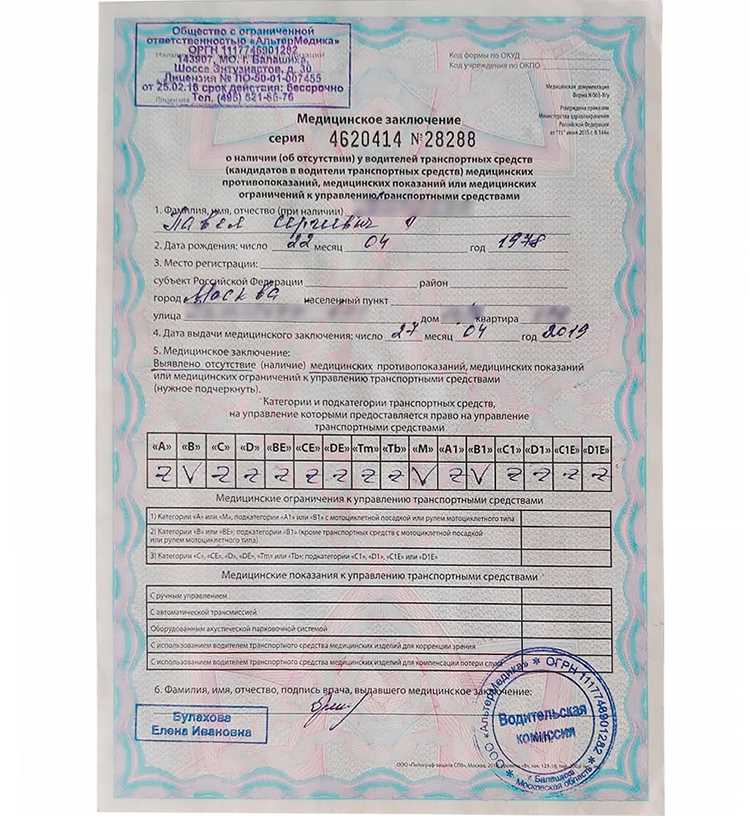 Общество с ограниченной
ответственностью «АльтерМедика»
ОГРН 1117746901282
143907, МО, г. Балашиха,
Шоссе Энтузиастов, д. 30
Лицензия № ЛО-50-01-007455
от 25.02.16 срок действия: бессрочно
Тел. (495) 521-55-76
Код формы по ОКУД
Код учреждения по ОКПО
Медицинская документация
Форма N 003-В/у
Утверждена приказом
Министерства здравоохранения
Российской Федерации
от "15" июня 2015 г. N 344н
Медицинское заключение
серия 4620414 №28288
о наличии (об отсутствии) у водителей транспортных средств
(кандидатов в водители транспортных средств) медицинских
противопоказаний, медицинских показаний или медицинских
ограничений к управлению транспортными средствами
1. Фамилия, имя, отчество (при наличии)
Павел Сергеевич
2. Дата рождения: число 22 месяц 04 год 1978
3. Место регистрации:
субъект Российской Федерации район
город Москва населенный пункт
улица дом квартира
4. Дата выдачи медицинского заключения: число 27 месяц 04 год 2019
5. Медицинское заключение:
Выявлено отсутствие (наличие) медицинских противопоказаний, медицинских показаний
или медицинских ограничений к управлению транспортными средствами
(нужное подчеркнуть).
Категории и подкатегории транспортных средств,
на управление которыми предоставляется право на управление
транспортными средствами
«A» «B» «C» «D» «BE» «CE» «DE» «Tm» «Tb» «M» «A1» «B1» «C1» «D1» «C1E» «D1E»
Z V Z Z Z Z Z Z Z V Z V Z Z Z Z
Медицинские ограничения к управлению транспортными средствами
1) Категории «А» или «М», подкатегории «А1» или «В1» с мотоциклетной посадкой или рулем мотоциклетного типа
2) Категории «В» или «ВЕ»; подкатегории «В1» (кроме транспортных средств с мотоциклетной посадкой
или рулем мотоциклетного типа)
3) Категории «С», «СЕ», «D», «DE», «Tm» или «Tb»; подкатегории «C1», «D1», «C1E» или «D1E»
Медицинские показания к управлению транспортными средствами
С ручным управлением
С автоматической трансмиссией
Оборудованным акустической парковочной системой
С использованием водителем транспортного средства медицинских изделий для коррекции зрения
С использованием водителем транспортного средства медицинских изделий для компенсации потери слуха
6. Фамилия, имя, отчество, подпись врача, выдавшего медицинское заключение:
Булахова
Елена Ивановна
ООО «АльтерМедика» * ОГРН 1117746901282 *
Водительская
комиссия
г. Балашиха
Московская область